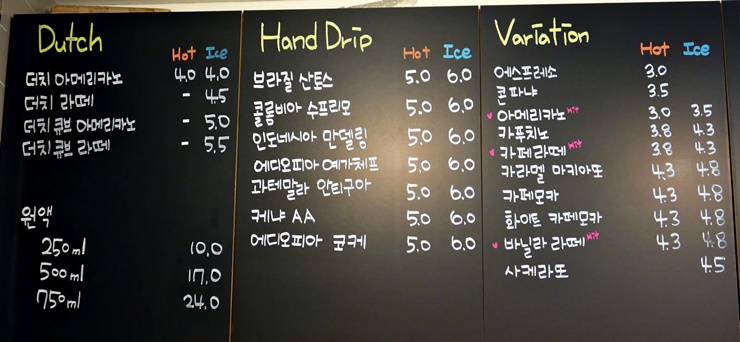 Dutch
Hot Ice
더치 아메리카노 4.0 4.0
더치 라떼 - 4.5
더치큐브 아메리카노 - 5.0
더치큐브 라떼 - 5.5
원액
250ml 10.0
500ml 17.0
750ml 24.0
Hand Drip
Hot Ice
브라질 산토스 5.0 6.0
콜롬비아 수프리모 5.0 6.0
인도네시아 만델링 5.0 6.0
에디오피아 예가체프 5.0 6.0
과테말라 안티구아 5.0 6.0
케냐 AA 5.0 6.0
에디오피아 코케 5.0 6.0
Variation
Hot Ice
에스프레소 3.0
콘파냐 3.5
♥ 아메리카노 Hit 3.0 3.5
카푸치노 3.8 4.3
♥ 카페라떼 Hit 3.8 4.3
카라멜 마키아또 4.3 4.8
카페모카 4.3 4.8
화이트 카페모카 4.3 4.8
♥ 바닐라 라떼 Hit 4.3 4.8
사케라또 4.5